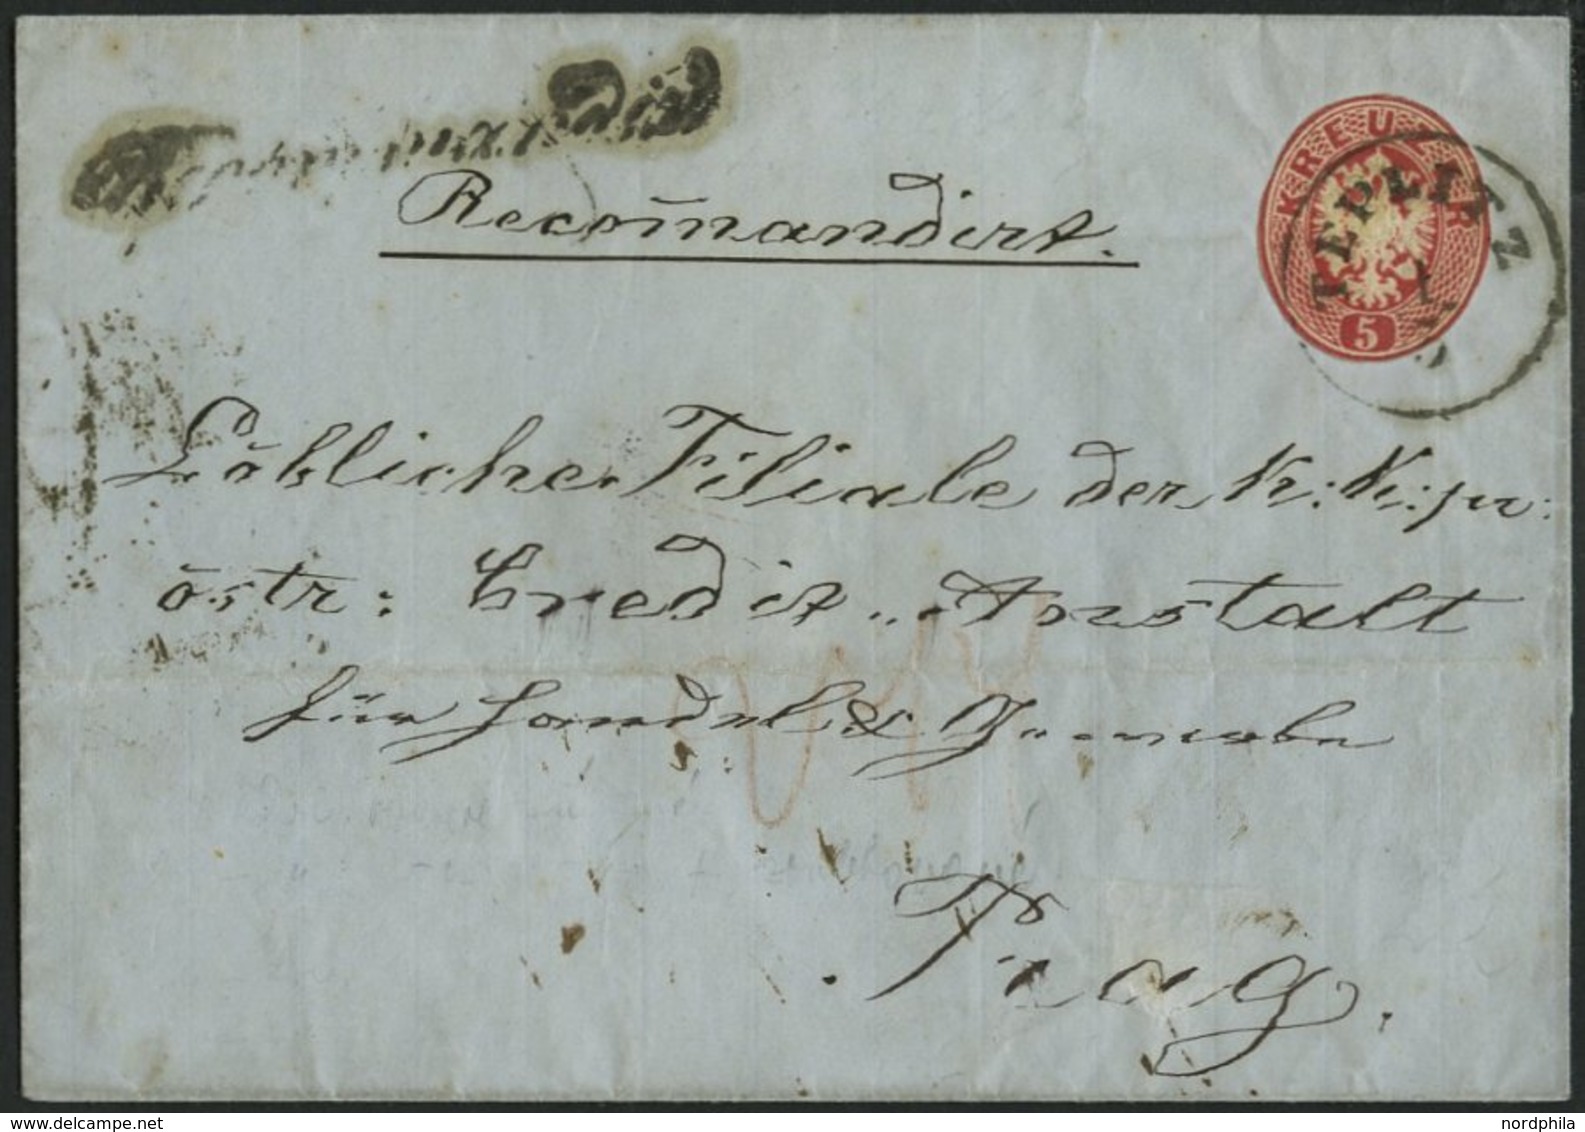 Recommandirt
Recom̄andirt.
KREUZER
5
TEPLITZ
Löbliche Filiale der K: K: pr:
östr: Credit-Anstalt
für Handel & Gewerbe
Prag.
delcampe.net
nordphila